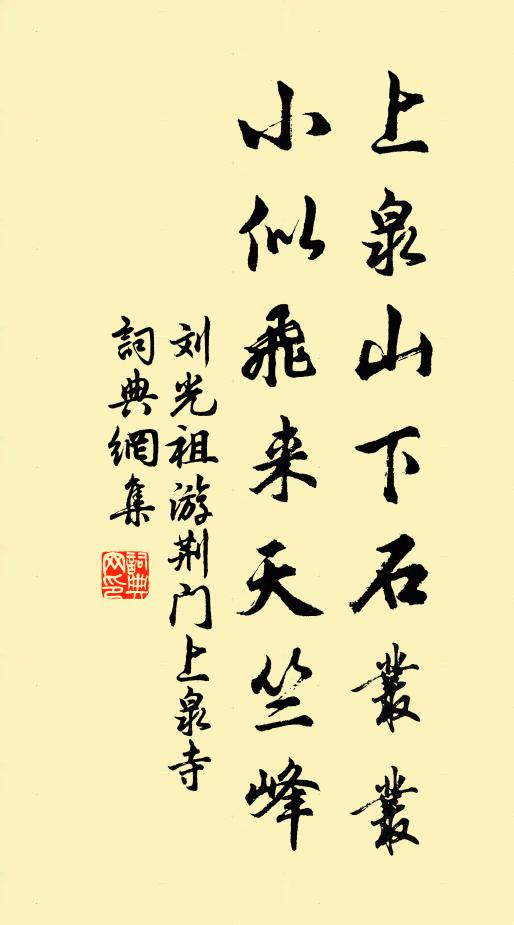 上泉山下石叢叢
小似飛来天竺峰
刘光祖游荆门上泉寺
詞典網集
詞典网印